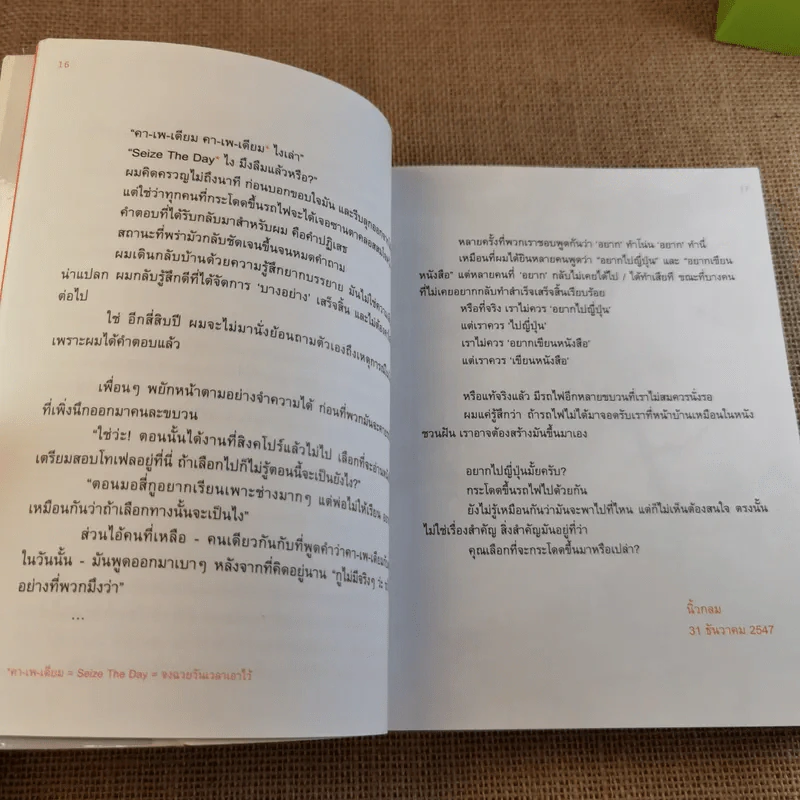 16
"คา-เพ-เดียม คา-เพ-เดียม* ไงเล่า"
"Seize The Day* ไง มึงลืมแล้วหรือ?"
ผมคิดครวญไม่ถึงนาที ก่อนบอกขอบใจมัน และรีบลุกออก
แต่ใช่ว่าทุกคนที่กระโดดขึ้นรถไฟจะได้เจอซานตาคลอส
คำตอบที่ได้รับกลับมาสำหรับผม คือคำปฏิเสธ
สถานะที่พร่ามัวกลับชัดเจนขึ้นจนหมดคำถาม
ผมเดินกลับบ้านด้วยความรู้สึกยากบรรยาย มันไม่ใช่
น่าแปลก ผมกลับรู้สึกดีที่ได้จัดการ 'บางอย่าง' เสร็จสิ้น และไม่ต้อง
ต่อไป
ใช่ อีกสี่สิบปี ผมจะไม่มานั่งย้อนถามตัวเองถึงเหตุการณ์
เพราะผมได้คำตอบแล้ว
เพื่อนๆ พยักหน้าตามอย่างจำความได้ ก่อนที่พวกมันจะ
ที่เพิ่งนึกออกมาคนละขบวน
"ใช่ว่ะ! ตอนนั้นได้งานที่สิงคโปร์แล้วไม่ไป เลือกที่จะอ่าน
เตรียมสอบโทเฟลอยู่ที่นี่ ถ้าเลือกไปก็ไม่รู้ตอนนี้จะเป็นยังไง?"
"ตอนมอสี่กูอยากเรียนเพาะช่างมากๆ แต่พ่อไม่ให้เรียน
เหมือนกันว่าถ้าเลือกทางนั้นจะเป็นไง"
ส่วนไอ้คนที่เหลือ - คนเดียวกันกับที่พูดคำว่าคา-เพ-เดียม
ในวันนั้น - มันพูดออกมาเบาๆ หลังจากที่คิดอยู่นาน "กูไม่มีจริงๆ ว่ะ
อย่างที่พวกมึงว่า"
...
*คา-เพ-เดียม = Seize The Day = จงฉวยวันเวลาเอาไว้
หลายครั้งที่พวกเราชอบพูดกันว่า 'อยาก' ทำโน่น 'อยาก' ทำนี่
เหมือนที่ผมได้ยินหลายคนพูดว่า "อยากไปญี่ปุ่น" และ "อยากเขียน
หนังสือ" แต่หลายคนที่ 'อยาก' กลับไม่เคยได้ไป / ได้ทำเสียที ขณะที่บางคน
ที่ไม่เคยอยากกลับทำสำเร็จเสร็จสิ้นเรียบร้อย
หรือที่จริง เราไม่ควร 'อยากไปญี่ปุ่น'
แต่เราควร 'ไปญี่ปุ่น'
เราไม่ควร 'อยากเขียนหนังสือ'
แต่เราควร 'เขียนหนังสือ'
หรือแท้จริงแล้ว มีรถไฟอีกหลายขบวนที่เราไม่สมควรนั่งรอ
ผมแค่รู้สึกว่า ถ้ารถไฟไม่ได้มาจอดรับเราที่หน้าบ้านเหมือนในหนัง
ชวนฝัน เราอาจต้องสร้างมันขึ้นมาเอง
อยากไปญี่ปุ่นมั้ยครับ?
กระโดดขึ้นรถไฟไปด้วยกัน
ยังไม่รู้เหมือนกันว่ามันจะพาไปที่ไหน แต่ก็ไม่เห็นต้องสนใจ ตรงนั้น
ไม่ใช่เรื่องสำคัญ สิ่งสำคัญมันอยู่ที่ว่า
คุณเลือกที่จะกระโดดขึ้นมาหรือเปล่า?
นิ้วกลม
31 ธันวาคม 2547